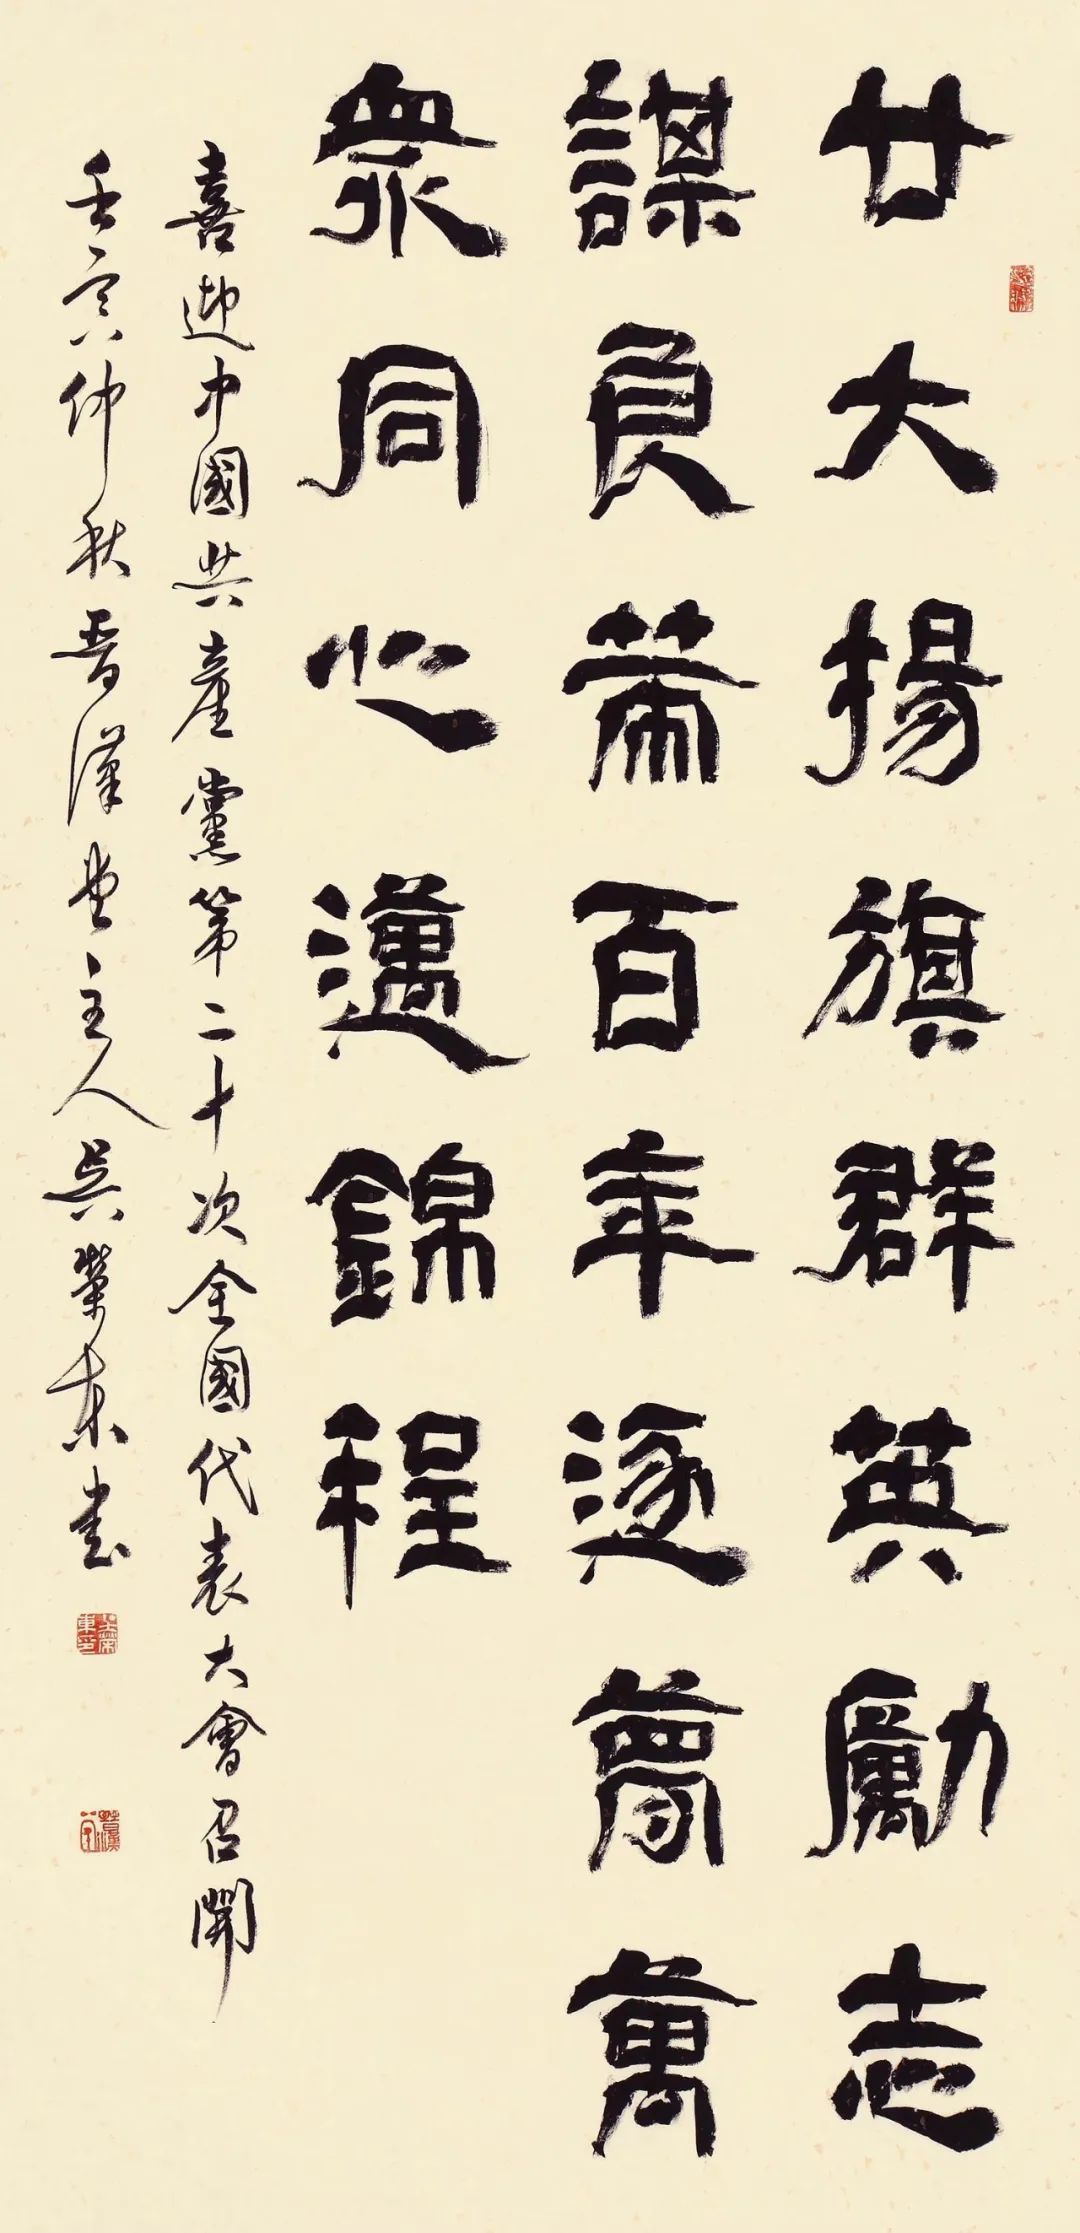 廿大揚旗群英勵志
謀良策百年逐夢萬
衆同心邁錦程
喜迎中國共產黨第二十次全國代表大會召開
壬寅仲秋晉漢堂主人吳榮東書
吳榮東印